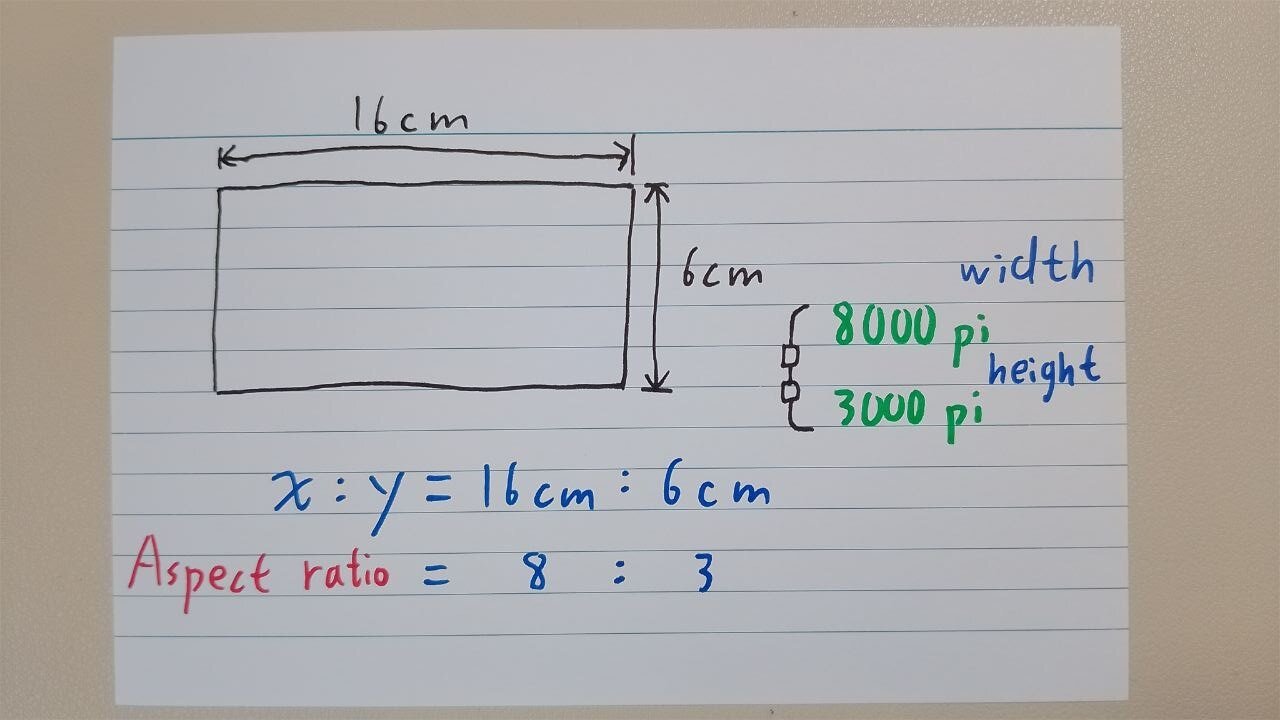 16cm
6cm
width
8000 pi
height
3000 pi
x : y = 16cm : 6cm
Aspect ratio = 8 : 3